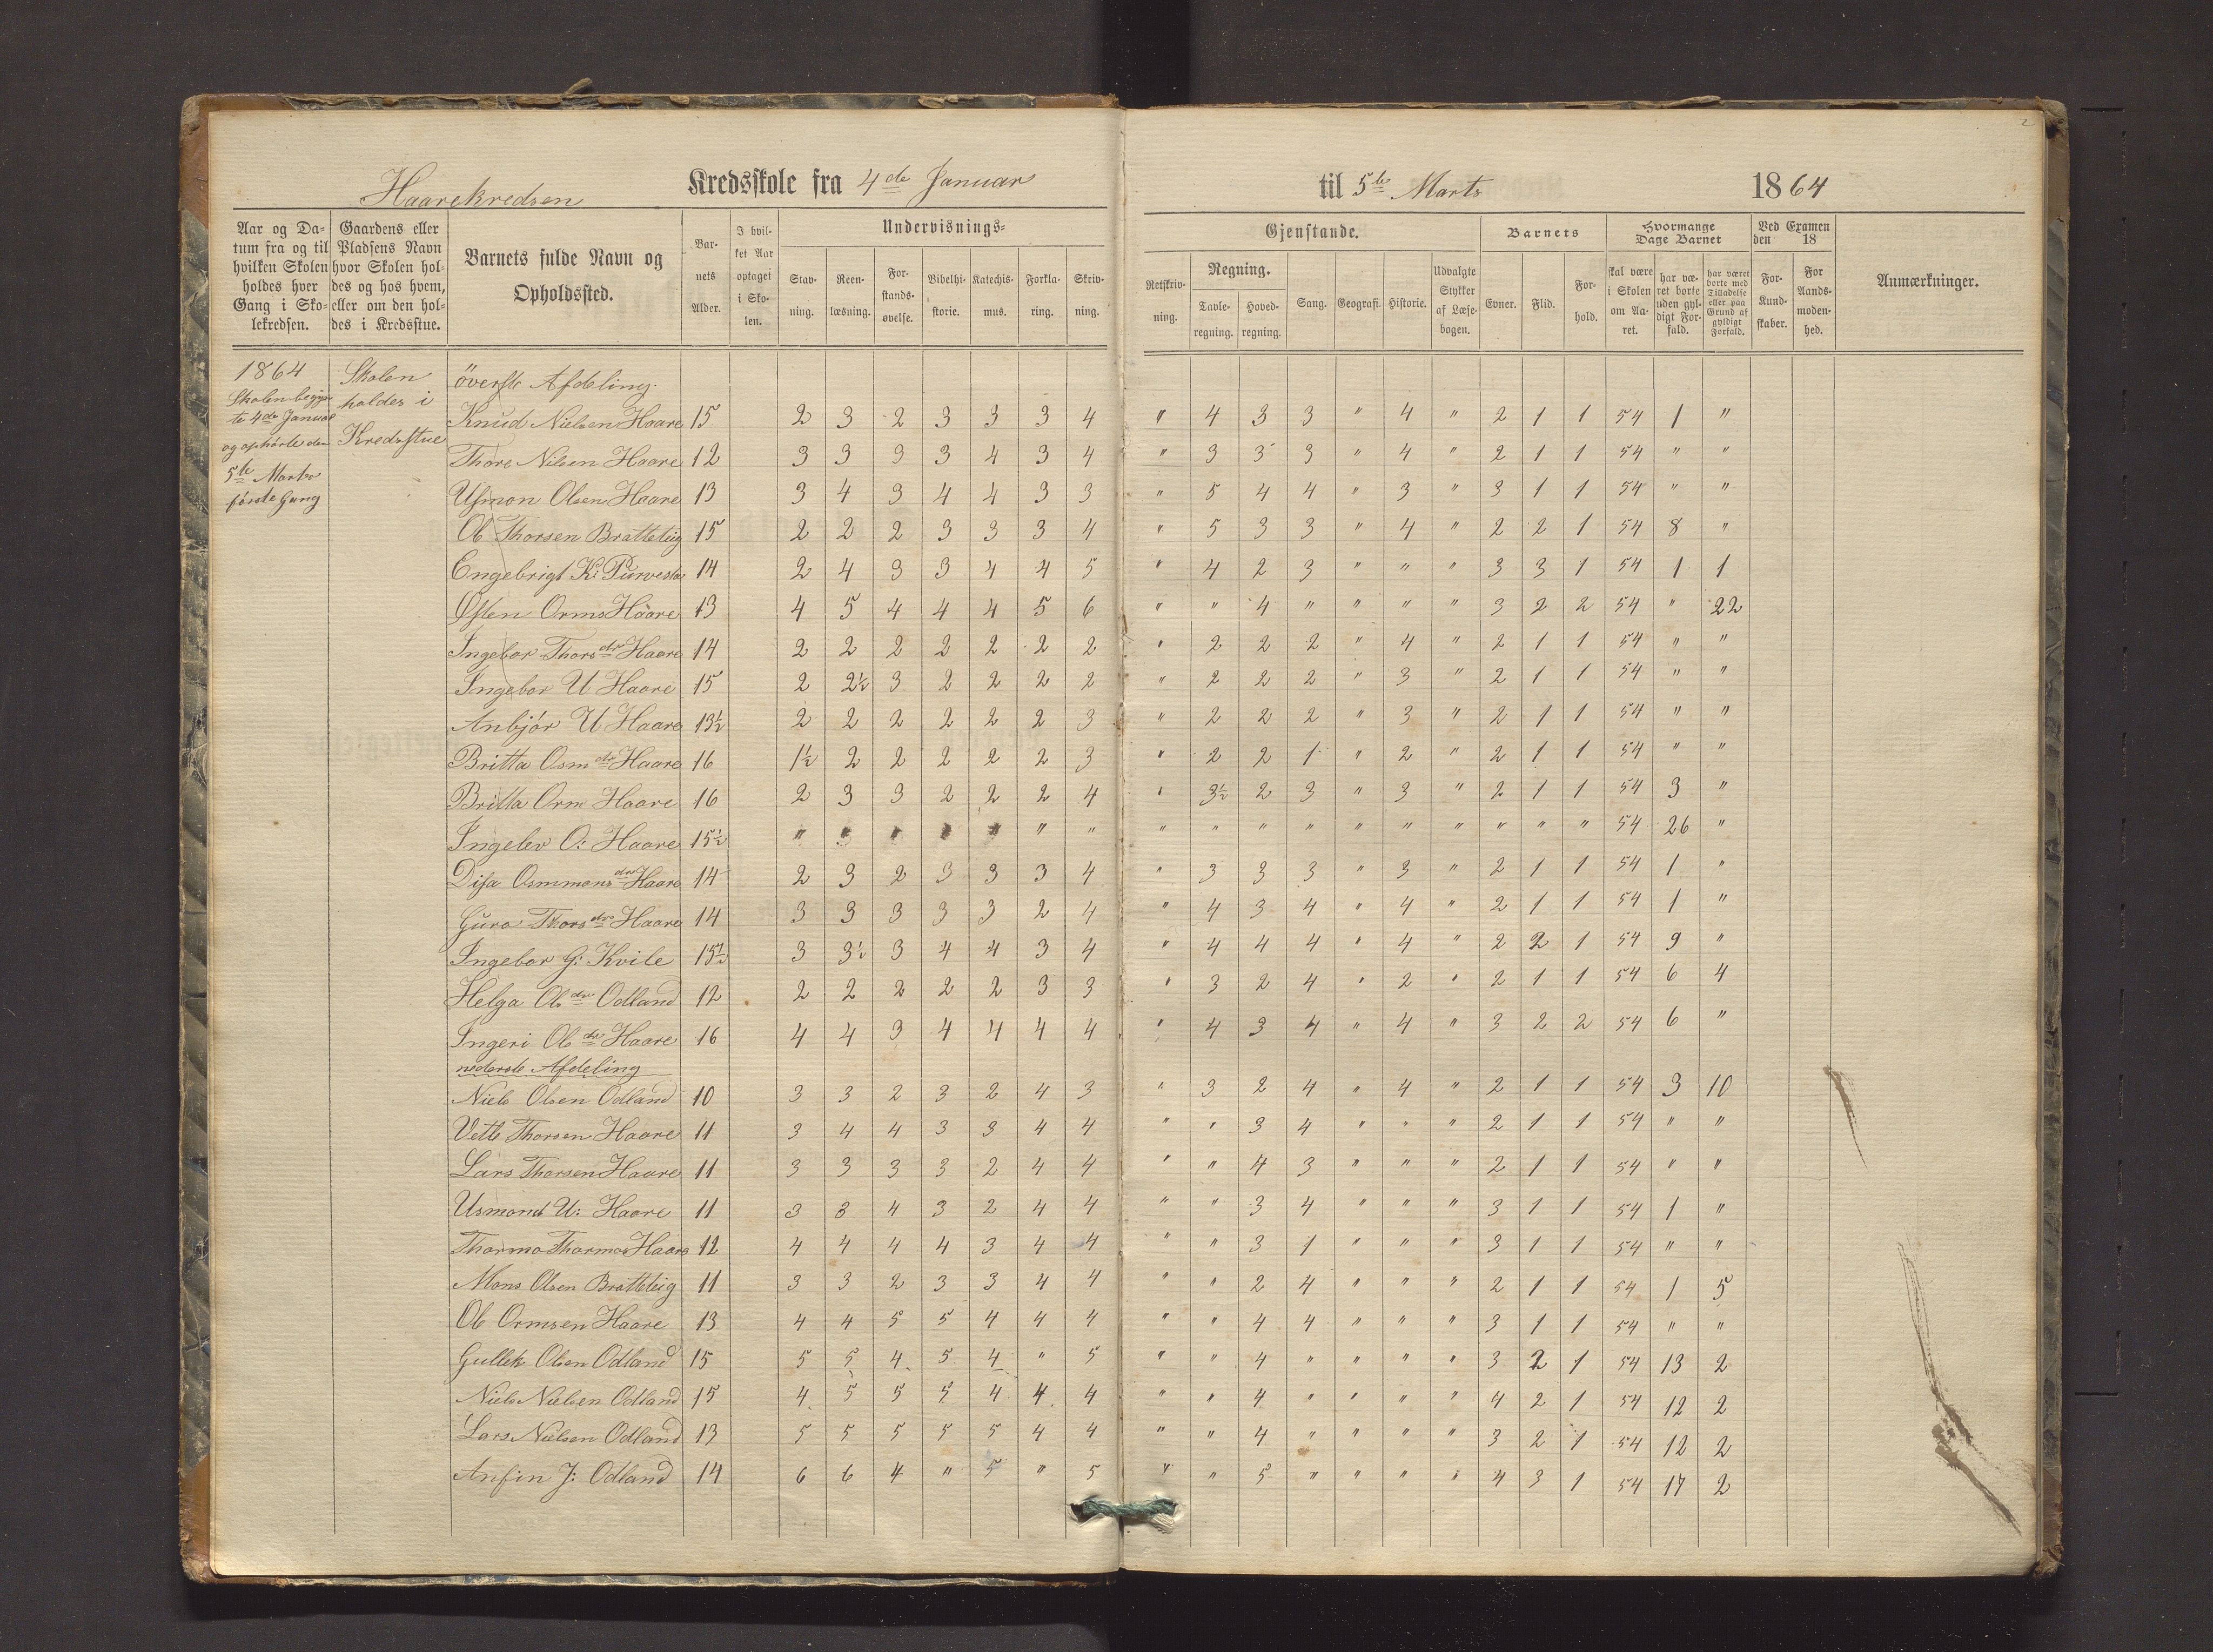 2
Haarekredsen Kredsskole fra 4de Januar til 5te Marts 1864
Aar og Datum fra og til hvilken Skolen holdes hver Gang i Skolekredsen.
Gaardens eller Pladsens Navn hvor Skolen holdes og hos hvem, eller om den holdes i Kredsstue.
Barnets fulde Navn og Opholdssted.
Barnets Alder.
I hvilket Aar optaget i Skolen.
Undervisnings-
Stavning. Reenlæsning. Forstandsøvelse. Bibelhistorie. Katechismus. Forklaring. Skrivning.
Gjenstande.
Retskrivning. Regning. Tavleregning. Hovedregning. Sang. Geografi. Historie. Udvalgte Stykker af Læsebogen.
Barnets
Evner. Flid. Forhold.
Hvormange Dage Barnet
skal være i Skolen om Aaret. har været borte uden gyldigt Forfald. har været borte med Tilladelse eller paa Grund af gyldigt Forfald.
Ved Examen den 18
For Kundskaber. For Aandsmodenhed.
Anmærkninger.
1864
Skolen begyn-
te 4de Januar
og ophørte den
5te Marts
første Gang
Skolen
holdes i
Kredsstue
överste Afdeling.
Knud Nielsen Haare 15 2 3 2 3 3 3 4 " 4 3 3 " 4 " 2 1 1 54 1 "
Thore Nilsen Haare 12 3 3 3 3 4 3 4 " 3 3 3 " 4 " 2 1 1 54 " "
Usmon Olsen Haare 13 3 4 3 4 4 3 3 " 5 4 4 " 3 " 3 1 1 54 " "
Ole Thorsen Bratteteig 15 2 2 2 3 3 3 4 " 5 3 3 " 4 " 2 2 1 54 8 "
Engebrigt K: 14 2 4 3 3 4 4 5 " 4 2 3 " " " 3 3 1 54 1 1
Østen Orms Haare 13 4 5 4 4 4 5 6 " " 4 " " " " 3 2 2 54 " 22
Ingebor Thorsdr Haare 14 2 2 2 2 2 2 2 " 2 2 2 " 4 " 2 1 1 54 " "
Ingebor U Haare 15 2 2½ 3 2 2 2 2 " 2 2 2 " 3 " 2 1 1 54 " "
Anbjör U Haare 13½ 2 2 2 2 2 2 3 " 2 2 2 " 3 " 2 1 1 54 " "
Britta Osmdr Haare 16 1½ 2 2 2 2 2 3 " 2 2 1 " 2 " 2 1 1 54 " "
Britta Orm Haare 16 2 3 3 2 2 2 4 " 3½ 2 3 " 3 " 2 1 1 54 3 "
Ingelev O: Haare 15½ " " " " " " " " " " " " " " " " " 54 26 "
Disa Osmmonsdr Haare 14 2 3 2 3 3 3 4 " 3 3 3 " 3 " 2 1 1 54 1 "
Guro Thorsdr Haare 14 3 3 3 3 3 2 4 " 4 3 4 " 4 " 2 1 1 54 1 "
Ingebor G: Kvile 15½ 3 3½ 3 4 4 3 4 " 4 4 4 " 4 " 2 2 1 54 9 "
Helga Oledr Odland 12 2 2 2 2 2 3 3 " 3 2 4 " 2 " 2 1 1 54 6 4
Ingeri Oledr Haare 16 4 4 3 4 4 4 4 " 4 3 4 " 4 " 3 2 2 54 6 "
nederste Afdeling
Niels Olsen Odland 10 3 3 2 3 2 4 3 " 3 2 4 " 4 " 2 1 1 54 3 10
Vetle Thorsen Haare 11 3 4 4 3 3 4 4 " " 3 4 " " " 2 1 1 54 " "
Lars Thorsen Haare 11 3 3 3 3 2 4 4 " " 4 3 " " " 2 1 1 54 " "
Usmond U: Haare 11 3 3 4 3 2 4 4 " " 3 4 " " " 3 1 1 54 1 "
Thormo Thormos Haare 12 4 4 4 4 3 4 4 " " 3 1 " " " 3 1 1 54 " "
Mons Olsen Bratteteig 11 3 3 2 3 3 4 4 " " 2 4 " " " 2 1 1 54 1 5
Ole Ormsen Haare 13 4 4 5 5 4 4 4 " " 4 4 " " " 3 1 1 54 " "
Gullek Olsen Odland 15 5 5 4 5 4 " 5 " " 4 " " " " 3 2 1 54 13 2
Niels Nielsen Odland 15 4 5 5 5 4 4 4 " " 4 " " " " 4 2 1 54 12 2
Lars Nielsen Odland 13 5 5 5 5 5 4 4 " " 4 " " " " 3 2 1 54 12 2
Anfin J: Odland 14 6 6 4 " 5 " 5 " " 5 " " " " 4 3 1 54 17 2